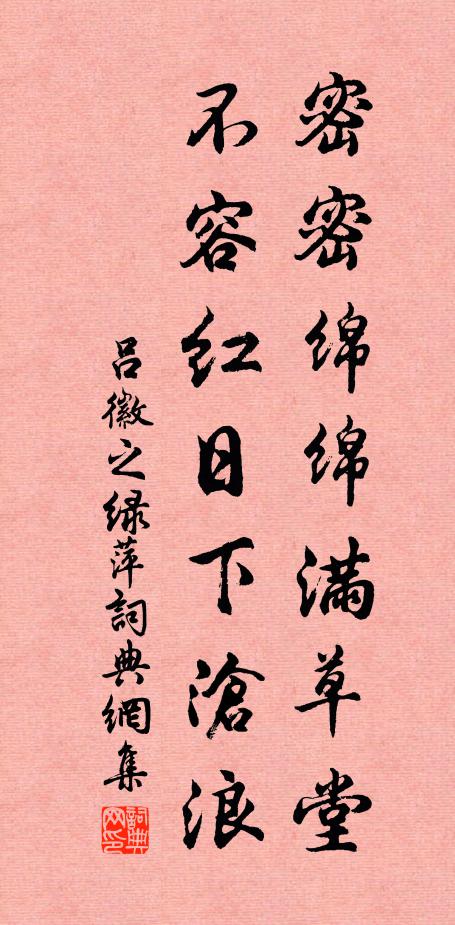 密密绵绵满草堂
不容红日下滄浪
吕徽之绿萍詞典網集
詞典网印